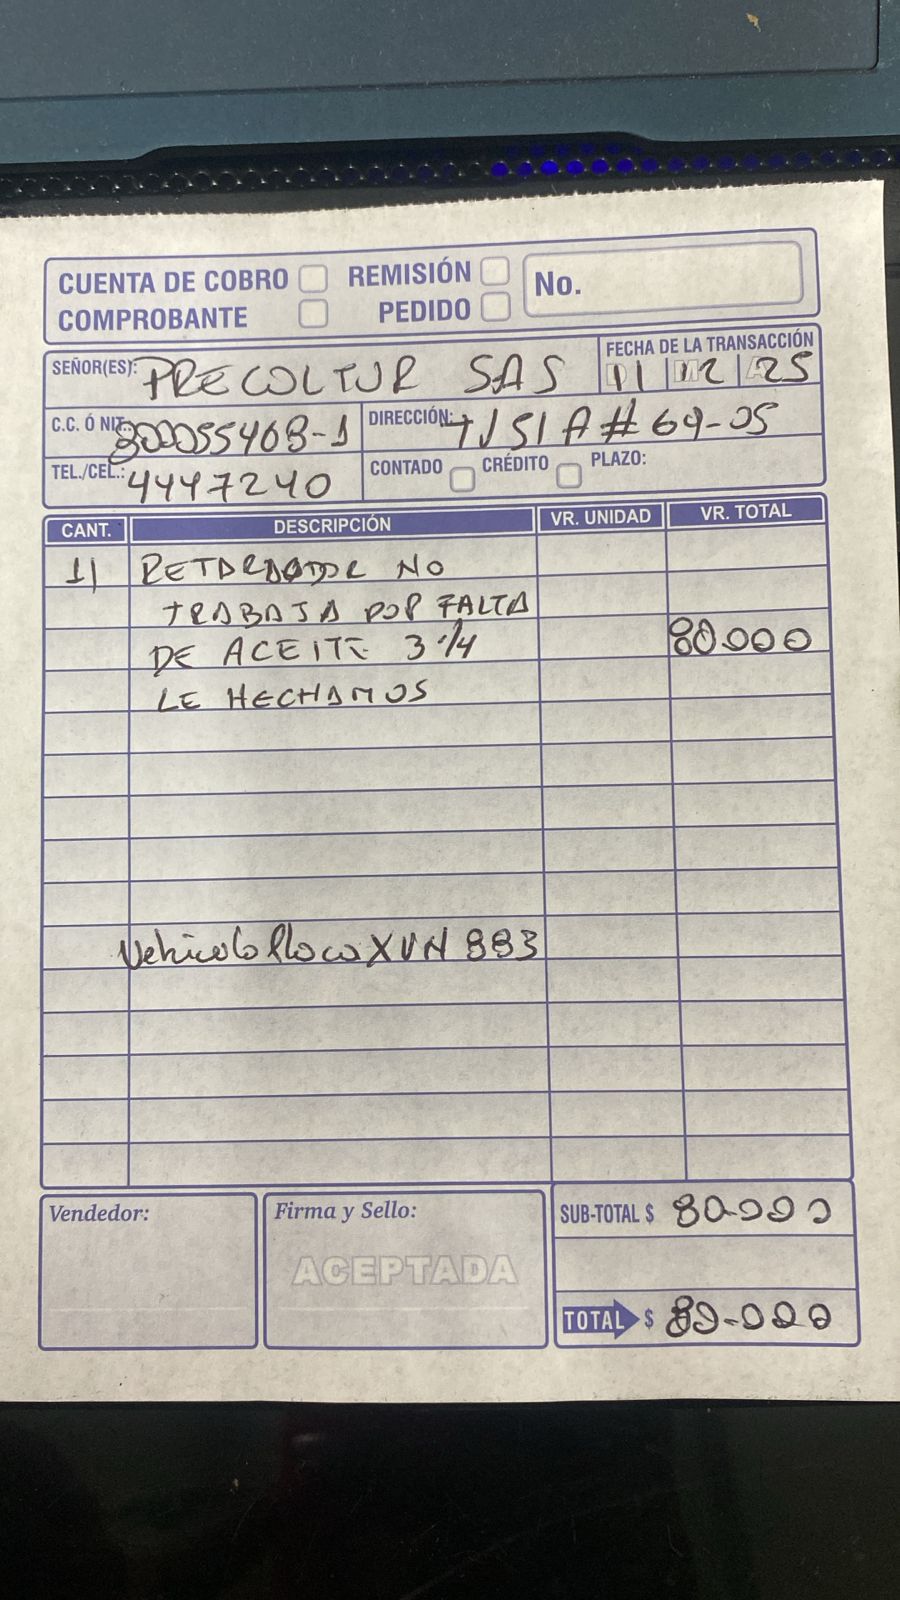 CUENTA DE COBRO REMISIÓN No.
COMPROBANTE PEDIDO
SEÑOR(ES): PRECOLTUR SAS
FECHA DE LA TRANSACCIÓN
D 11 M 12 A 25
C.C. Ó NIT.: 800055408-1 DIRECCIÓN: # 69-05
TEL./CEL.: 4447240 CONTADO CRÉDITO PLAZO:
CANT. DESCRIPCIÓN VR. UNIDAD VR. TOTAL
1) RETARDADOR NO
TRABAJA POR FALTA
DE ACEITE 3 1/4 80.000
LE HECHAMOS
Vehiculo Placa XVN 883
Vendedor: Firma y Sello: SUB-TOTAL $ 80.000
ACEPTADA
TOTAL $ 80.000